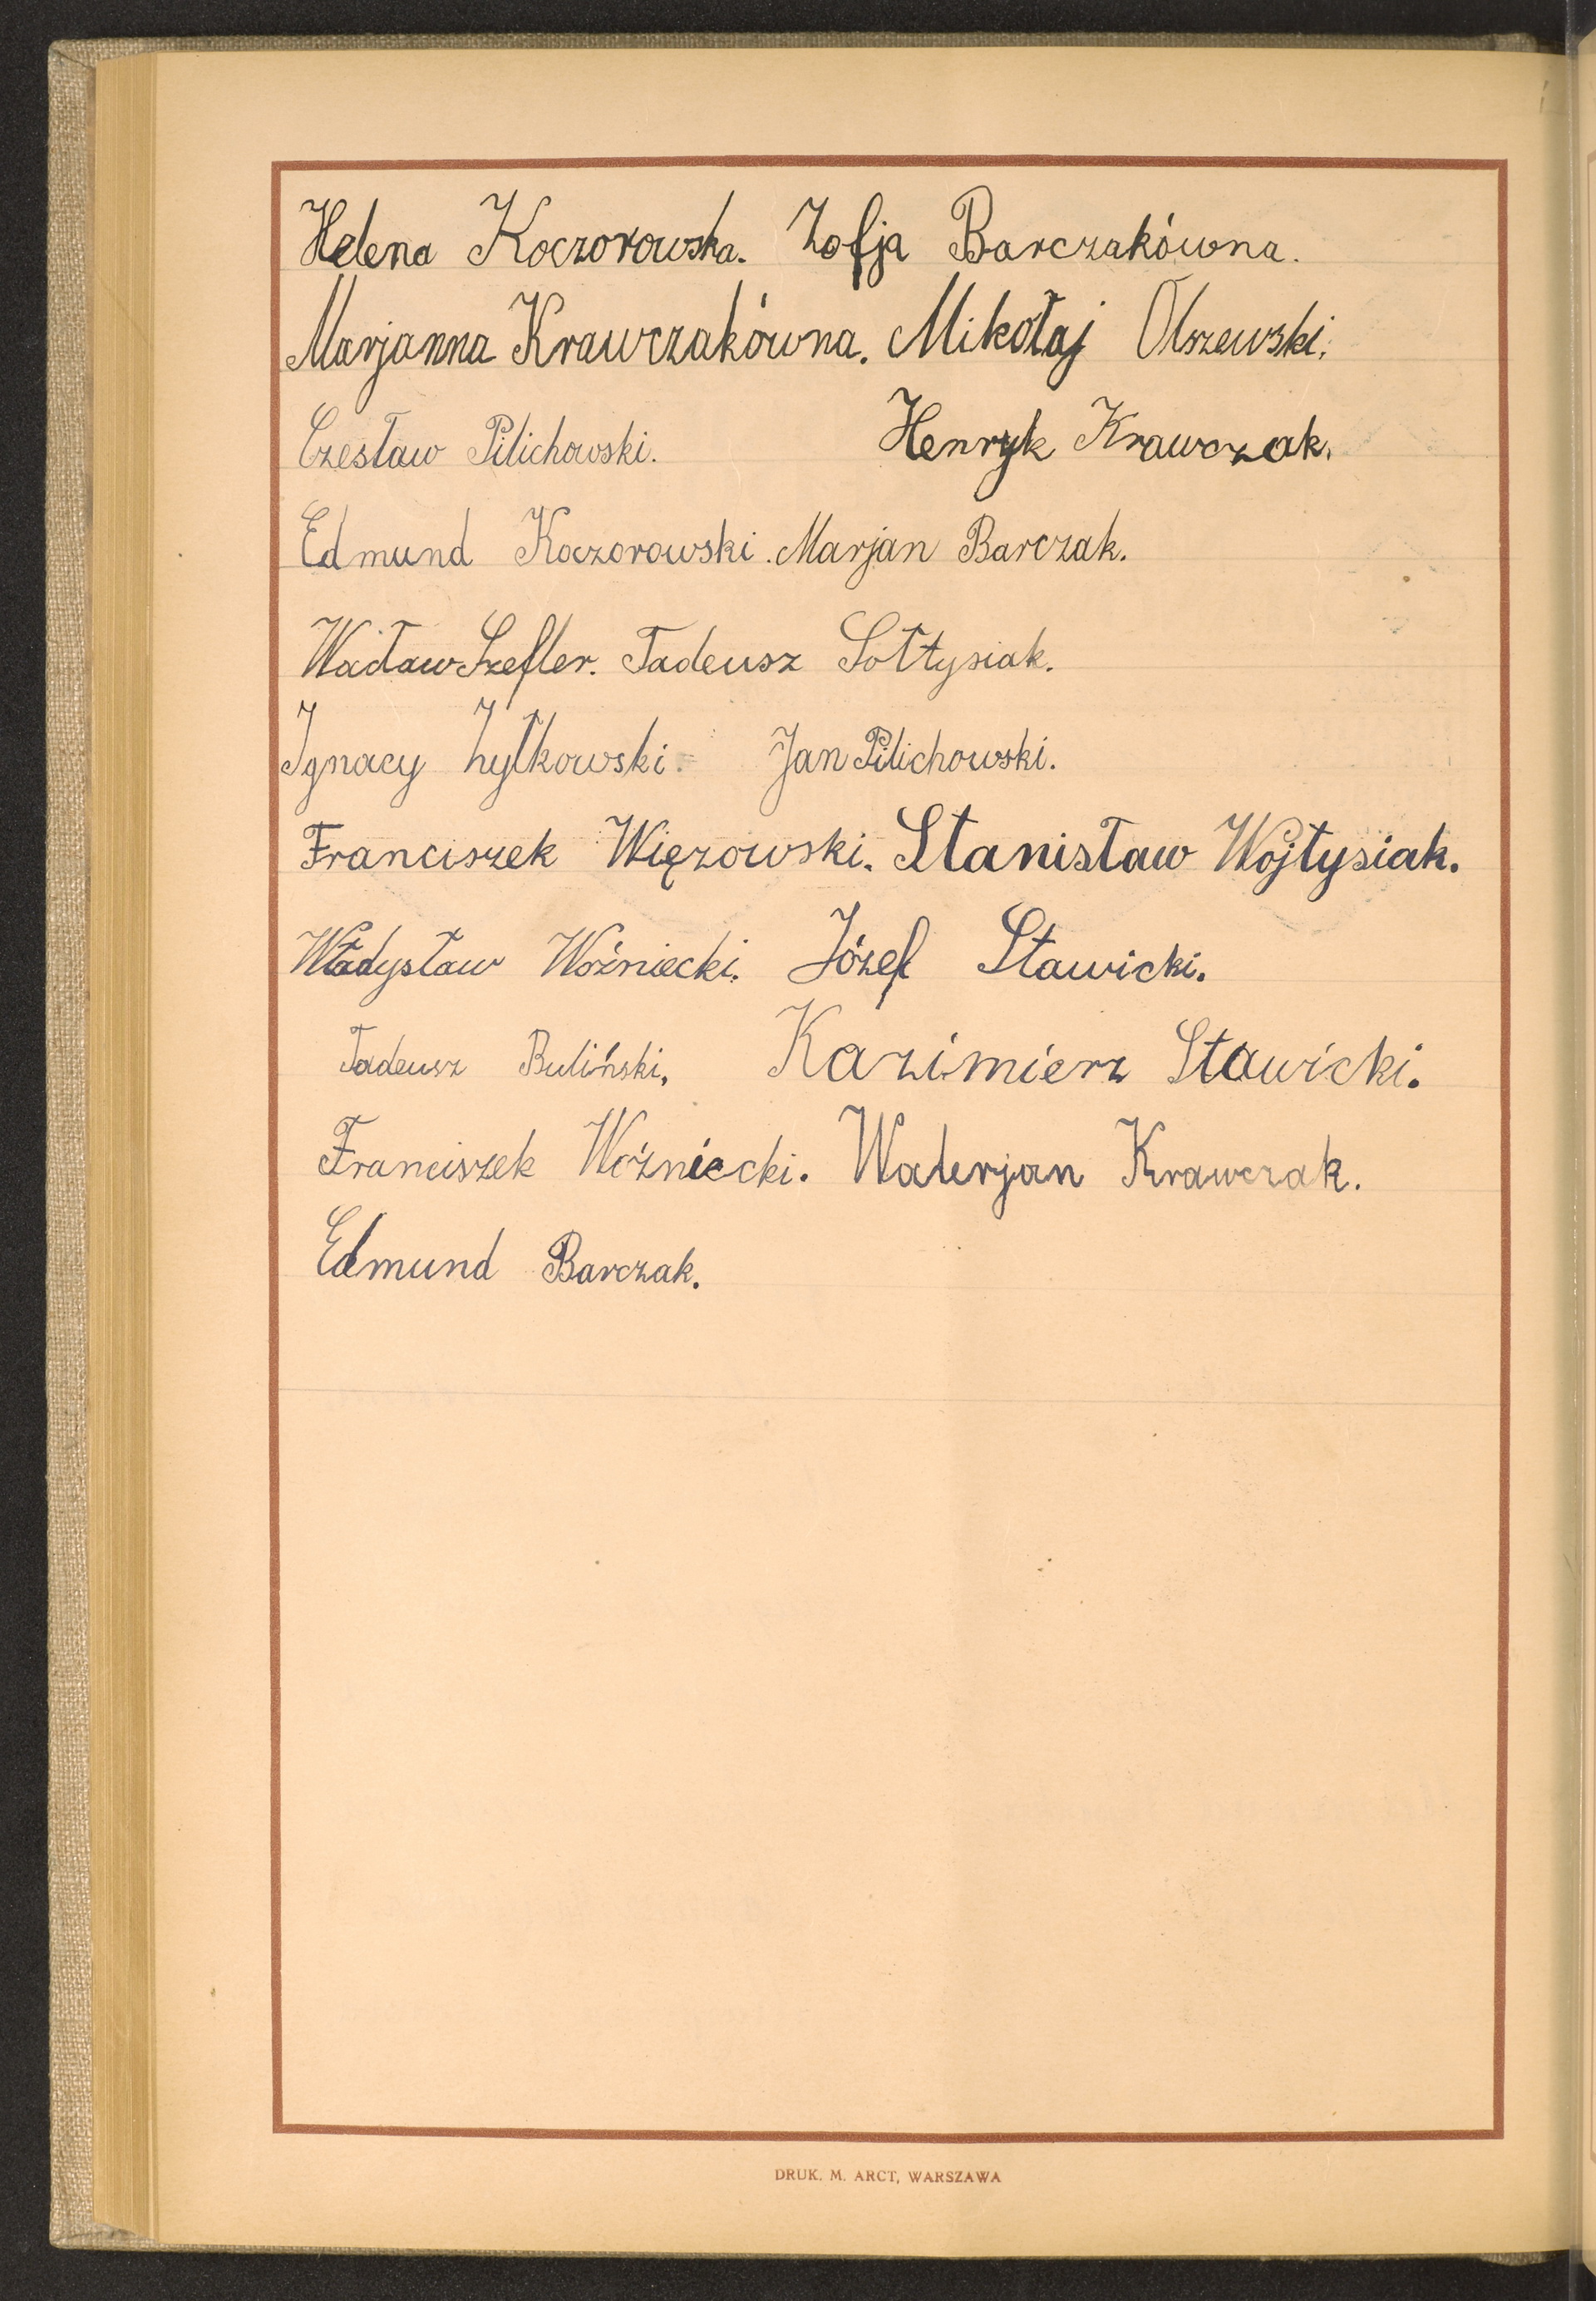 Helena Koczorowska. Zofja Barczakówna.
Marjanna Krawczakówna. Mikołaj Olszewski.
Czesław Pilichowski. Henryk Krawczak.
Edmund Koczorowski. Marjan Barczak.
Wacław Szefler. Tadeusz Sołtysiak.
Ignacy Żyłkowski. Jan Pilichowski.
Franciszek Więzowski. Stanisław Wojtysiak.
Władysław Woźniecki. Józef Stawicki.
Tadeusz Buliński. Kazimierz Stawicki.
Franciszek Woźniecki. Walerjan Krawczak.
Edmund Barczak.
DRUK. M. ARCT, WARSZAWA